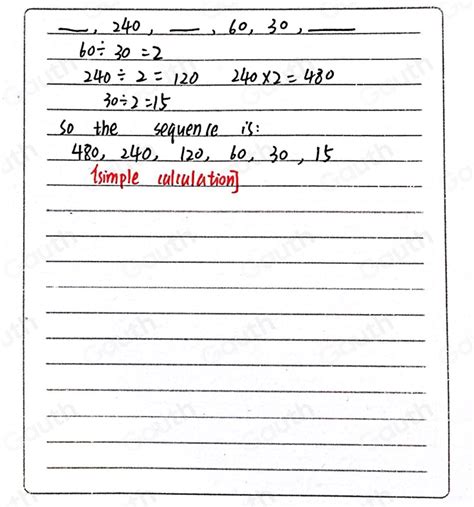 __, 240, __, 60, 30, __
60÷ 30 =2
240 ÷ 2 = 120 240×2 = 480
30÷2 =15
So the sequence is:
480, 240, 120, 60, 30, 15
[simple calculation]